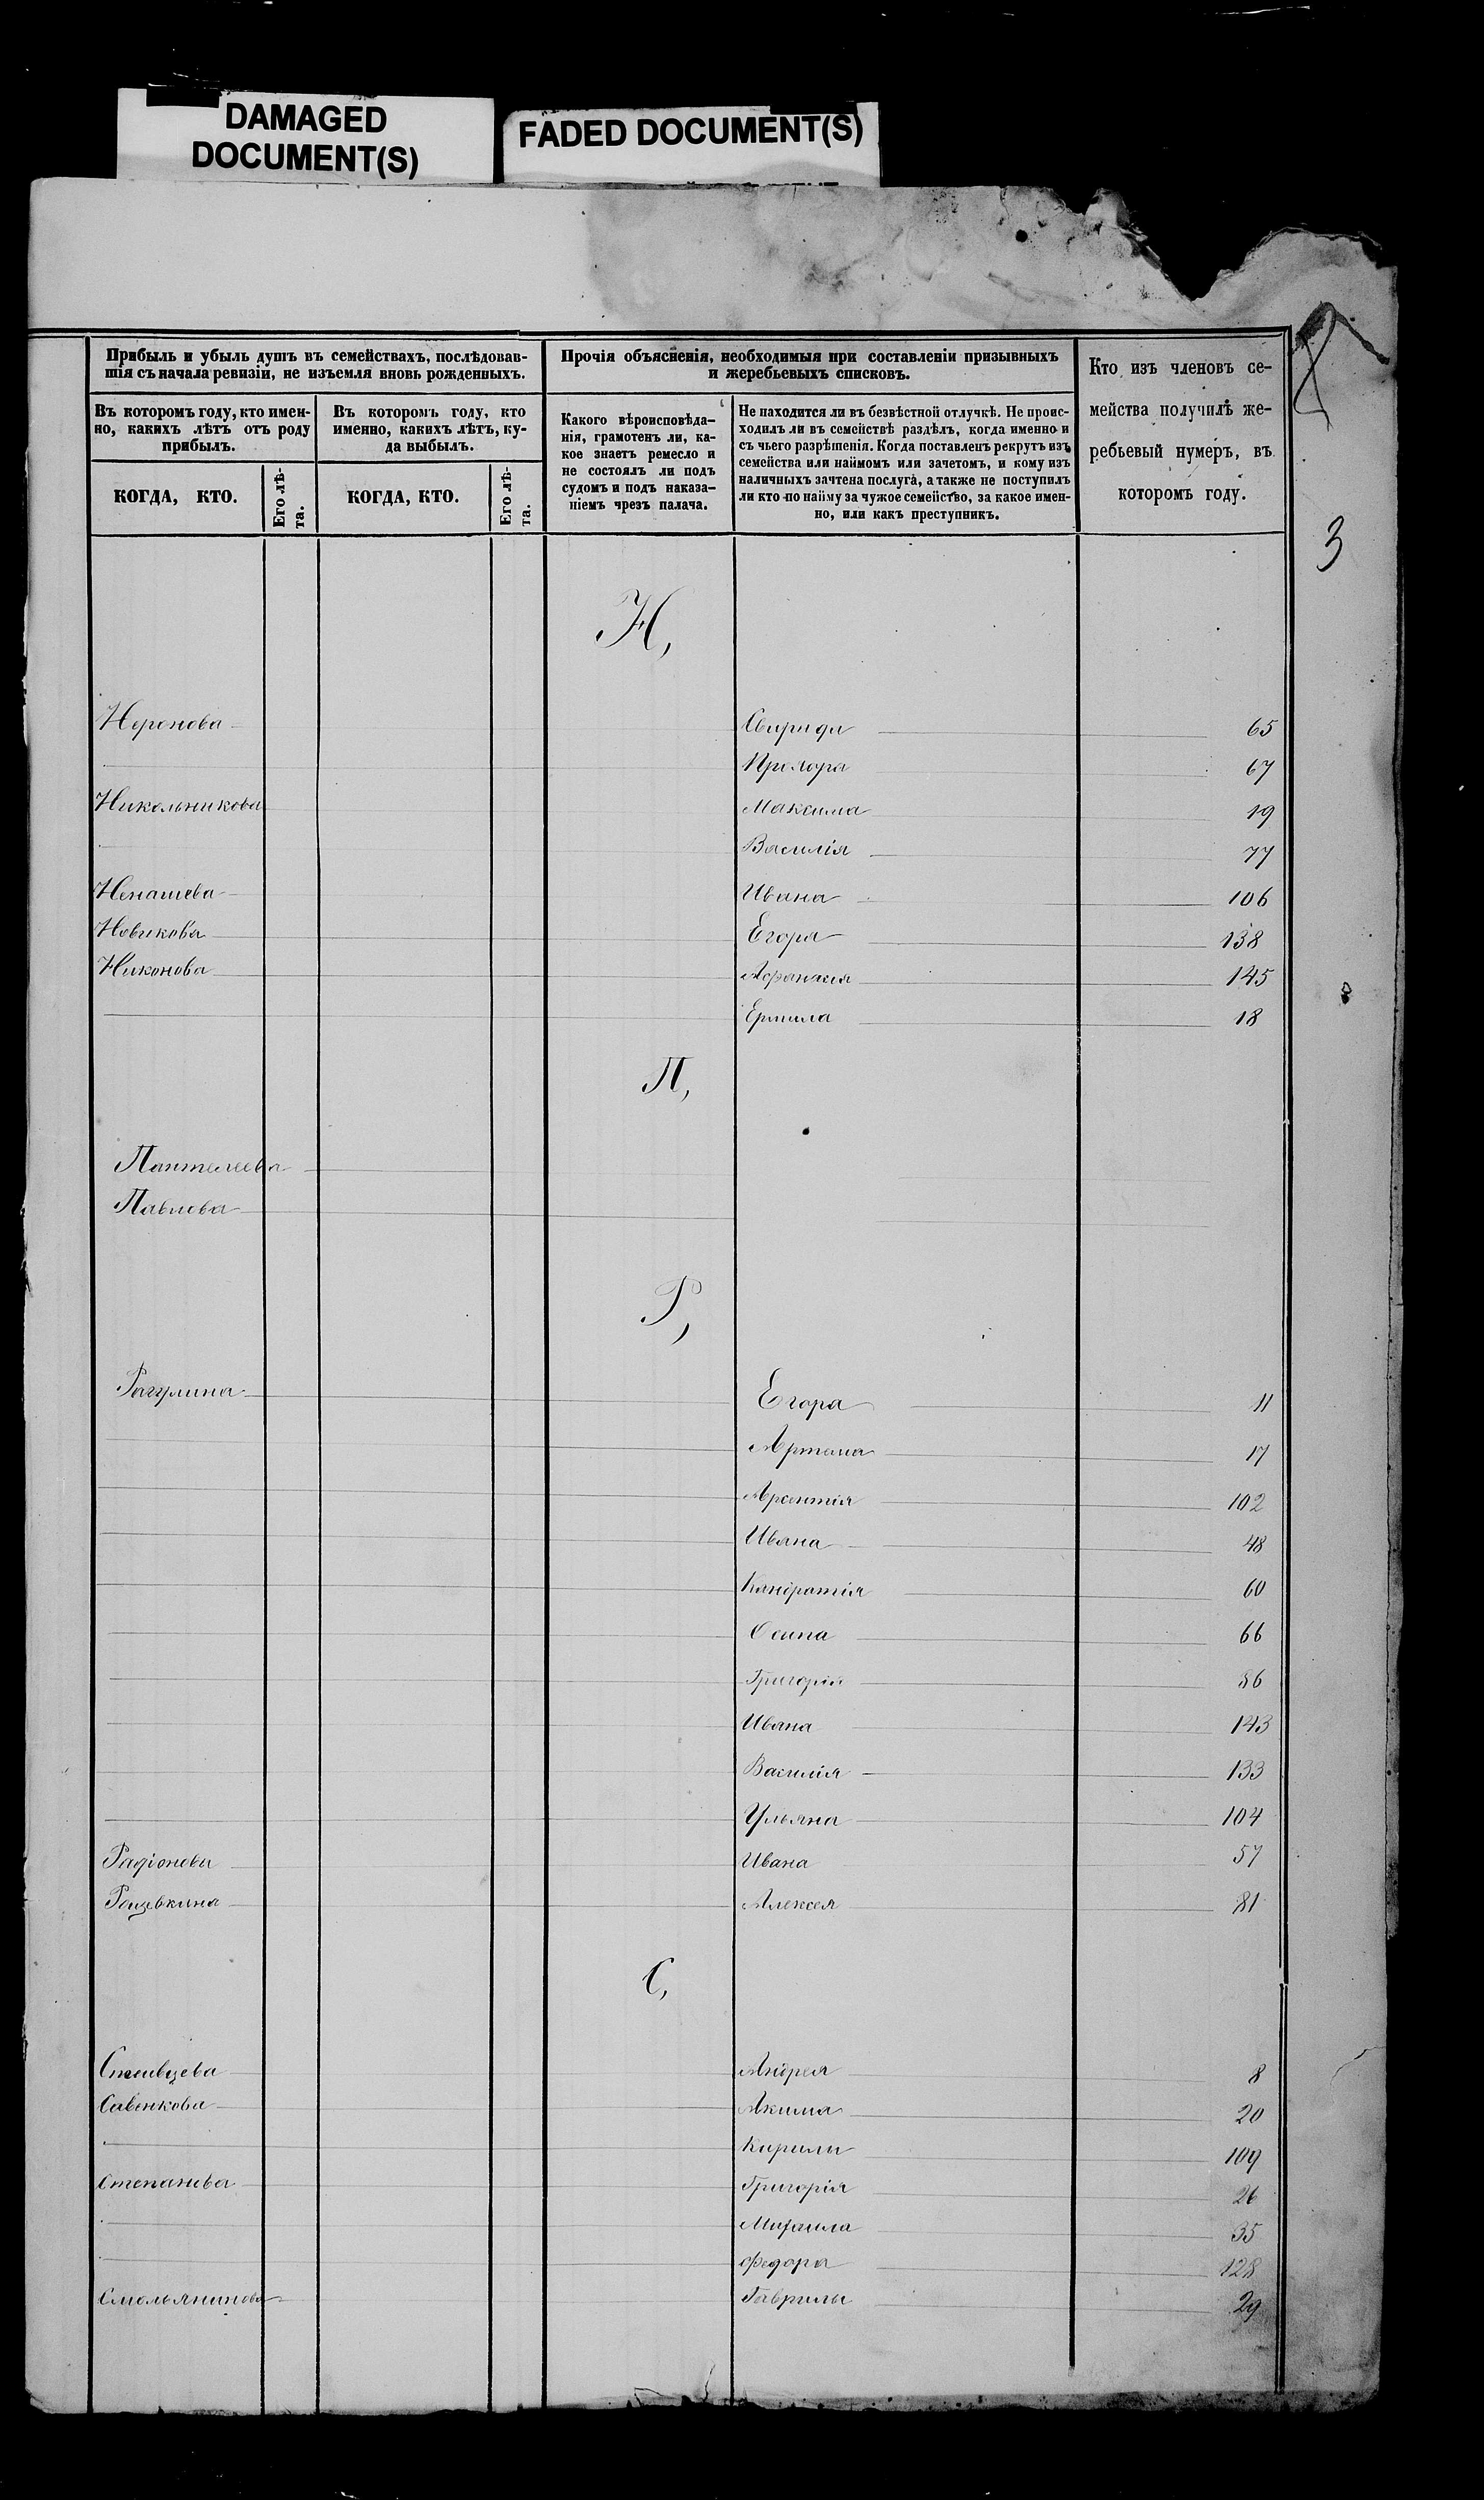 DAMAGED
DOCUMENT(S)
FADED DOCUMENT(S)
Прибыль и убыль душъ въ семействахъ, послѣдовав-
шія съ начала ревизіи, не изъемля вновь рожденныхъ.
Прочія объясненія, необходимыя при составленіи призывныхъ
и жеребьевыхъ списковъ.
Кто изъ членовъ се-
мейства получилъ же-
ребьевый нумеръ, въ
которомъ году.
Въ которомъ году, кто имен-
но, какихъ лѣтъ отъ роду
прибылъ.
Въ которомъ году, кто
именно, какихъ лѣтъ, ку-
да выбылъ.
Какого вѣроисповѣда-
нія, грамотенъ ли, ка-
кое знаетъ ремесло и
не состоялъ ли подъ
судомъ и подъ наказа-
ніемъ чрезъ палача.
Не находится ли въ безвѣстной отлучкѣ. Не проис-
ходилъ ли въ семействѣ раздѣлъ, когда именно и
съ чьего разрѣшенія. Когда поставленъ рекрутъ изъ
семейства или наймомъ или зачетомъ, и кому изъ
наличныхъ зачтена послуга, а также не поступилъ
ли кто по найму за чужое семейство, за какое имен-
но, или какъ преступникъ.
КОГДА, КТО.
Его лѣ-
та.
КОГДА, КТО.
Его лѣ-
та.
3
Н,
Неронова Свирида 65
Прохора 67
Никольникова Максима 19
Василія 77
Ненашева Ивана 106
Новикова Егора 138
Никонова Афанасия 145
Ермила 18
П,
Пантелеева
Павлова
Р,
Рагулина Егора 11
Артема 17
Арсентія 102
Ивана 48
Кандратія 60
Осипа 66
Григорія 86
Ивана 143
Василія 133
Ульяна 104
Радіонова Ивана 57
Алексея 81
С,
Андрея 8
Савенкова Акима 20
Кирилы 109
Степанова Григорія 26
Михаила 35
Федора 128
Смольянинова Гаврилы 29